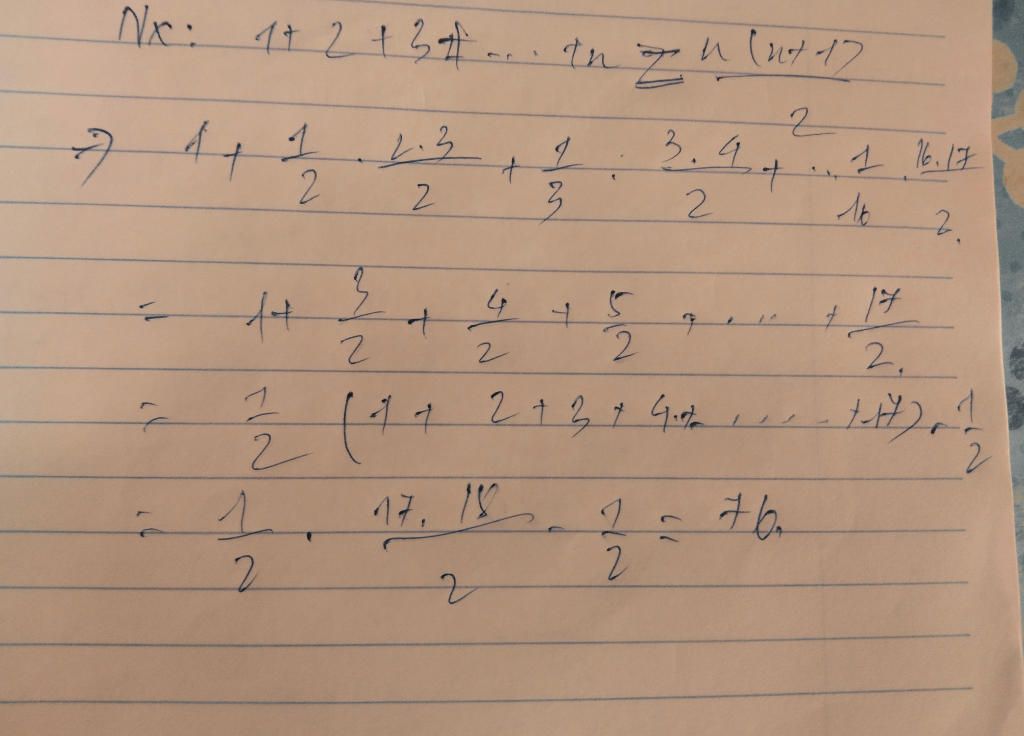 Nx: 1+ 2 + 3 + ... + n = n(n+1)/2
=> 1 + 1/2 . 2.3/2 + 1/3 . 3.4/2 + ... 1/16 . 16.17/2.
= 1+ 3/2 + 4/2 + 5/2 + ... + 17/2.
= 1/2 (1 + 2 + 3 + 4 + ..... + 17) - 1/2
= 1/2 . 17.18/2 - 1/2 = 76.